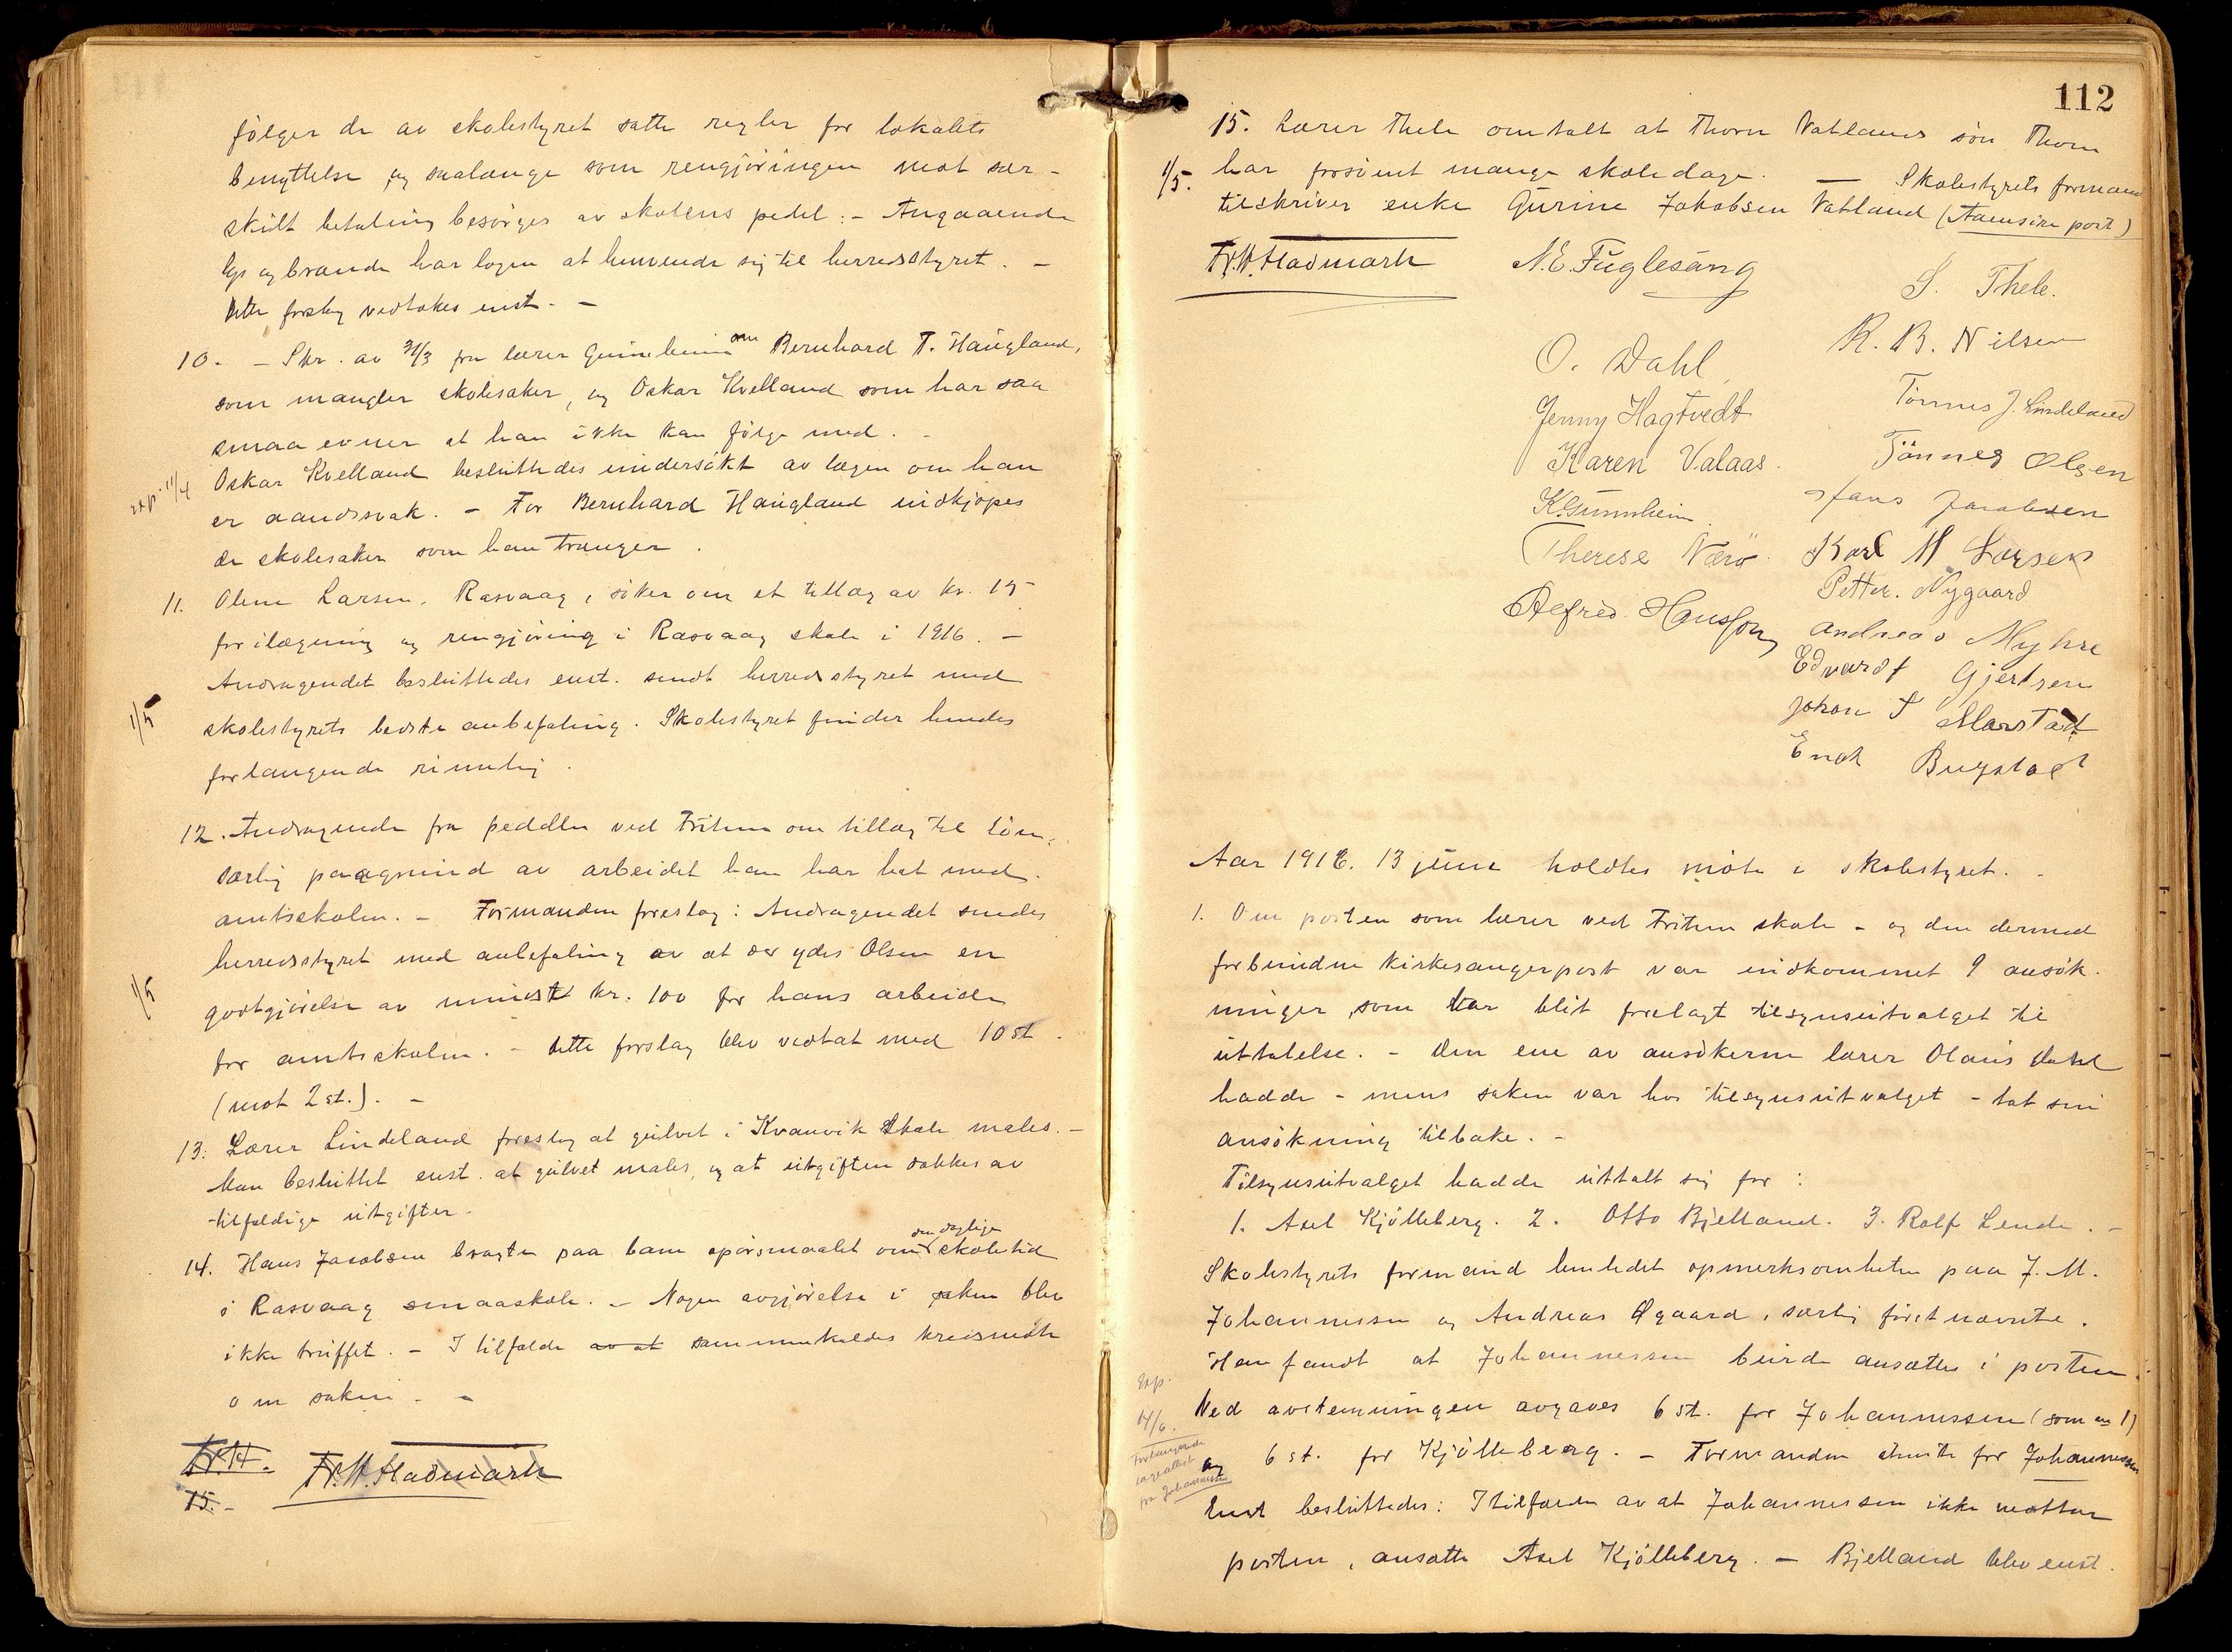 følger de av skolestyret satte regler for lokalets
benyttelse og saalænge som rengjøringen mot sær-
skilt betaling besørges av skolens pedel: - Angaaende
lys og brænde har logen at henvende sig til herredsstyret. -
Dette forslag vedtokes enst. -
10. - Skr. av 31/3 fra lærer Gunnheim om Bernhard T. Haugland,
som mangler skolesaker, og Oskar Kvelland som har saa
smaa evner at han ikke kan følge med. -
exp. 11/4
Oskar Kvelland besluttedes undersøkt av lægen om han
er aandssvak. - For Bernhard Haugland indkjøpes
de skolesaker som han trænger.
11. Oline Larsen, Rasvaag, søker om et tillæg av kr. 15
for ilægning og rengjøring i Rasvaag skole i 1916. -
Andragendet besluttedes enst. sendt herredsstyret med
1/5
skolestyrets bedste anbefaling. Skolestyret finder hendes
forlangende rimelig.
12. Andragende fra pedellen ved Fritun om tillæg til løn,
særlig paagrund av arbeidet han har hat med
amtsskolen. - Formanden foreslog: Andragendet sendes
herredsstyret med anbefaling av at der ydes Olsen en
1/5
godtgjørelse av mindst kr. 100 for hans arbeide
for amtsskolen. - Dette forslag blev vedtat med 10 st.
(mot 2 st.). -
13. Lærer Lindeland foreslog at gulvet i Kvanvik Skole males. -
Man besluttet enst. at gulvet males, og at utgiften dækkes av
tilfældige utgifter.
14. Hans Jacobsen bragte paa bane spørsmaalet om den daglige skoletid
i Rasvaag smaaskole. - Nogen avgjørelse i saken blev
ikke truffet. - I tilfælde av at sammenkaldes kredsmøte
om saken. -
Fr. H. Fr. W. Hadmark
15. -
112
15. Lærer Thele omtalt at Thorn Vatlands søn Thorn
1/5. har forsømt mange skoledage. — Skolestyrets formand
tilskriver enke Gurine Jakobsen Vatland (Aaensire post)
Fr. W. Hadmark N. E. Fuglesang
S. Thele.
O. Dahl
R. B. Nilsen
Jenny Hagtvedt
Tönnes J. Lindeland
Karen Valaas.
Tönnes Olsen
K. Gunnheim.
Hans Jacobsen
Therese Nærø.
Karl M Larsen
Petter. Nygaard
Alfred Hansson
Andreas Myhre
Edvardt Gjertsen
Johan T Marstad
Enok Bugstad
Aar 1916. 13 juni holdtes møte i skolestyret. -
1. Om posten som lærer ved Fritun skole - og den dermed
forbundne kirkesangerpost var indkommet 9 ansøk-
ninger, som har blit forelagt tilsynsutvalget til
uttalelse. - Den ene av ansøkerne lærer Olaus Dahl
hadde - mens saken var hos tilsynsutvalget - tat sin
ansøkning tilbake. -
Tilsynsutvalget hadde uttalt sig for:
1. Axel Kjølleberg. 2. Otto Bjelland. 3. Rolf Lende. -
Skolestyrets formand henledet opmerksomheten paa J. M.
Johannessen og Andreas Øgaard, særlig førstnævnte.
Han fandt at Johannessen burde ansættes i posten.
Exp.
14/6.
Ved avstemningen avgaves 6 st. for Johannessen (som no 1)
Forlangende
lægeattest
fra Johannessen
og 6 st. for Kjølleberg. - Formanden stemte for Johannessen
Enst besluttedes: I tilfælde av at Johannessen ikke mottar
posten, ansatte Axel Kjølleberg. - Bjelland blev enst.